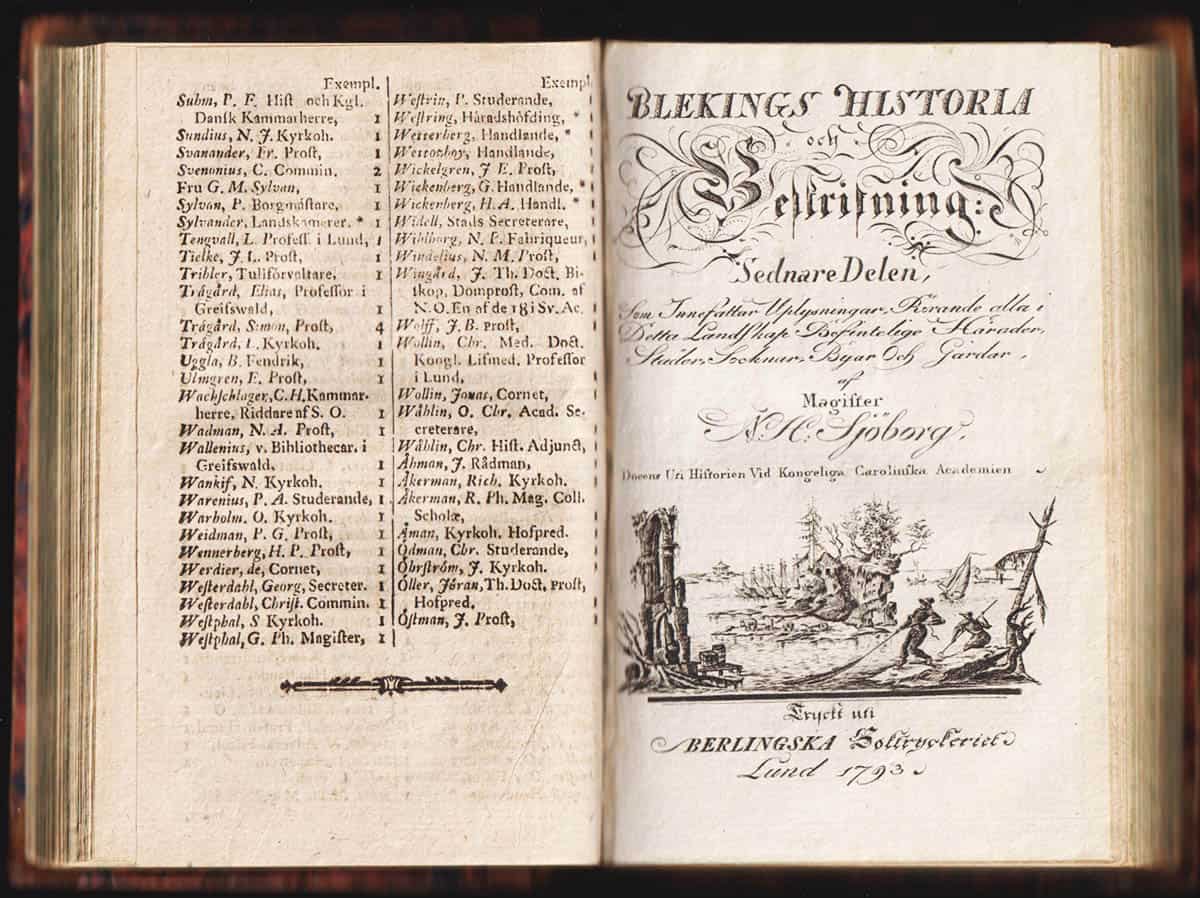 Exempl.
Suhm, P. F. Hist och Kgl.
Dansk Kammarherre, 1
Sundius, N. J. Kyrkoh. 1
Svanander, Fr. Prost, 1
Svenonius, C. Commin. 2
Fru G. M. Sylvan, 1
Sylvan, P. Borgmästare, 1
Sylvander, Landskamerer. * 1
Tengvall, L. Profess. i Lund, 1
Tielke, J. L. Prost, 1
Tribler, Tullförvaltare, 1
Trägård, Elias, Professor i
Greifswald, 1
Trägård, Simon, Prost, 4
Trägård, L. Kyrkoh. 1
Uggla, B. Fendrik, 1
Ulmgren, E. Prost, 1
Wachschlager, C. H. Kammar-
herre, Riddare af S. O. 1
Wadman, N. A. Prost, 1
Wallenius, v. Bibliothecar. i
Greifswald. 1
Wankif, N. Kyrkoh. 1
Warenius, P. A. Studerande, 1
Warholm. O. Kyrkoh. 1
Weidman, P. G. Prost, 1
Wennerberg, H. P. Prost, 1
Werdier, de, Cornet, 1
Westerdahl, Georg, Secreter. 1
Westerdahl, Christ. Commin. 1
Westphal, S Kyrkoh. 1
Westphal, G. Ph. Magister, 1
Exempl
Westrin, P. Studerande, 1
Westring, Häradshöfding, * 1
Wetterberg, Handlande, * 1
Handlande, 1
Wickelgren, J E. Prost, 1
Wickenberg, G. Handlande, * 1
Wickenberg, H. A. Handl. * 1
Widell, Stads Secreterare, 1
Wihlborg, N. P. Fabriqueur, 1
Windelius, N. M. Prost, 1
Wingård, J. Th. Doct. Bi-
skop, Domprost, Com. af
N. O. En af de 18 i Sv. Ac. 1
Wolff, J. B. Prost, 1
Wollin, Chr. Med. Doct.
Kongl. Lifmed. Professor
i Lund, 1
Wollin, Jonas, Cornet, 1
Wåhlin, O. Chr. Acad. Se-
creterare, 1
Wåhlin, Chr. Hist. Adjunct, 1
Åhman, J. Rådman, 1
Åkerman, Rich. Kyrkoh. 1
Åkerman, R. Ph. Mag. Coll.
Scholæ, 1
Åman, Kyrkoh. Hofpred. 1
Ödman, Chr. Studerande, 1
Öhrström, J. Kyrkoh. 1
Öller, Jöran, Th. Doct, Prost,
Hofpred. 1
Östman, J. Prost, 1
BLEKINGS HISTORIA
och
Beskrifning:
Sednare Delen,
Som Innefattar Uplysningar, Rörande alla i
Detta Landskap Befintelige Härader,
Städer, Socknar, Byar Och Gårdar,
af
Magister
N. H. Sjöborg,
Docens Uti Historien Vid Kongeliga Carolinska Academien
Tryckt uti
BERLINGSKA Boktryckeriet
Lund 1793